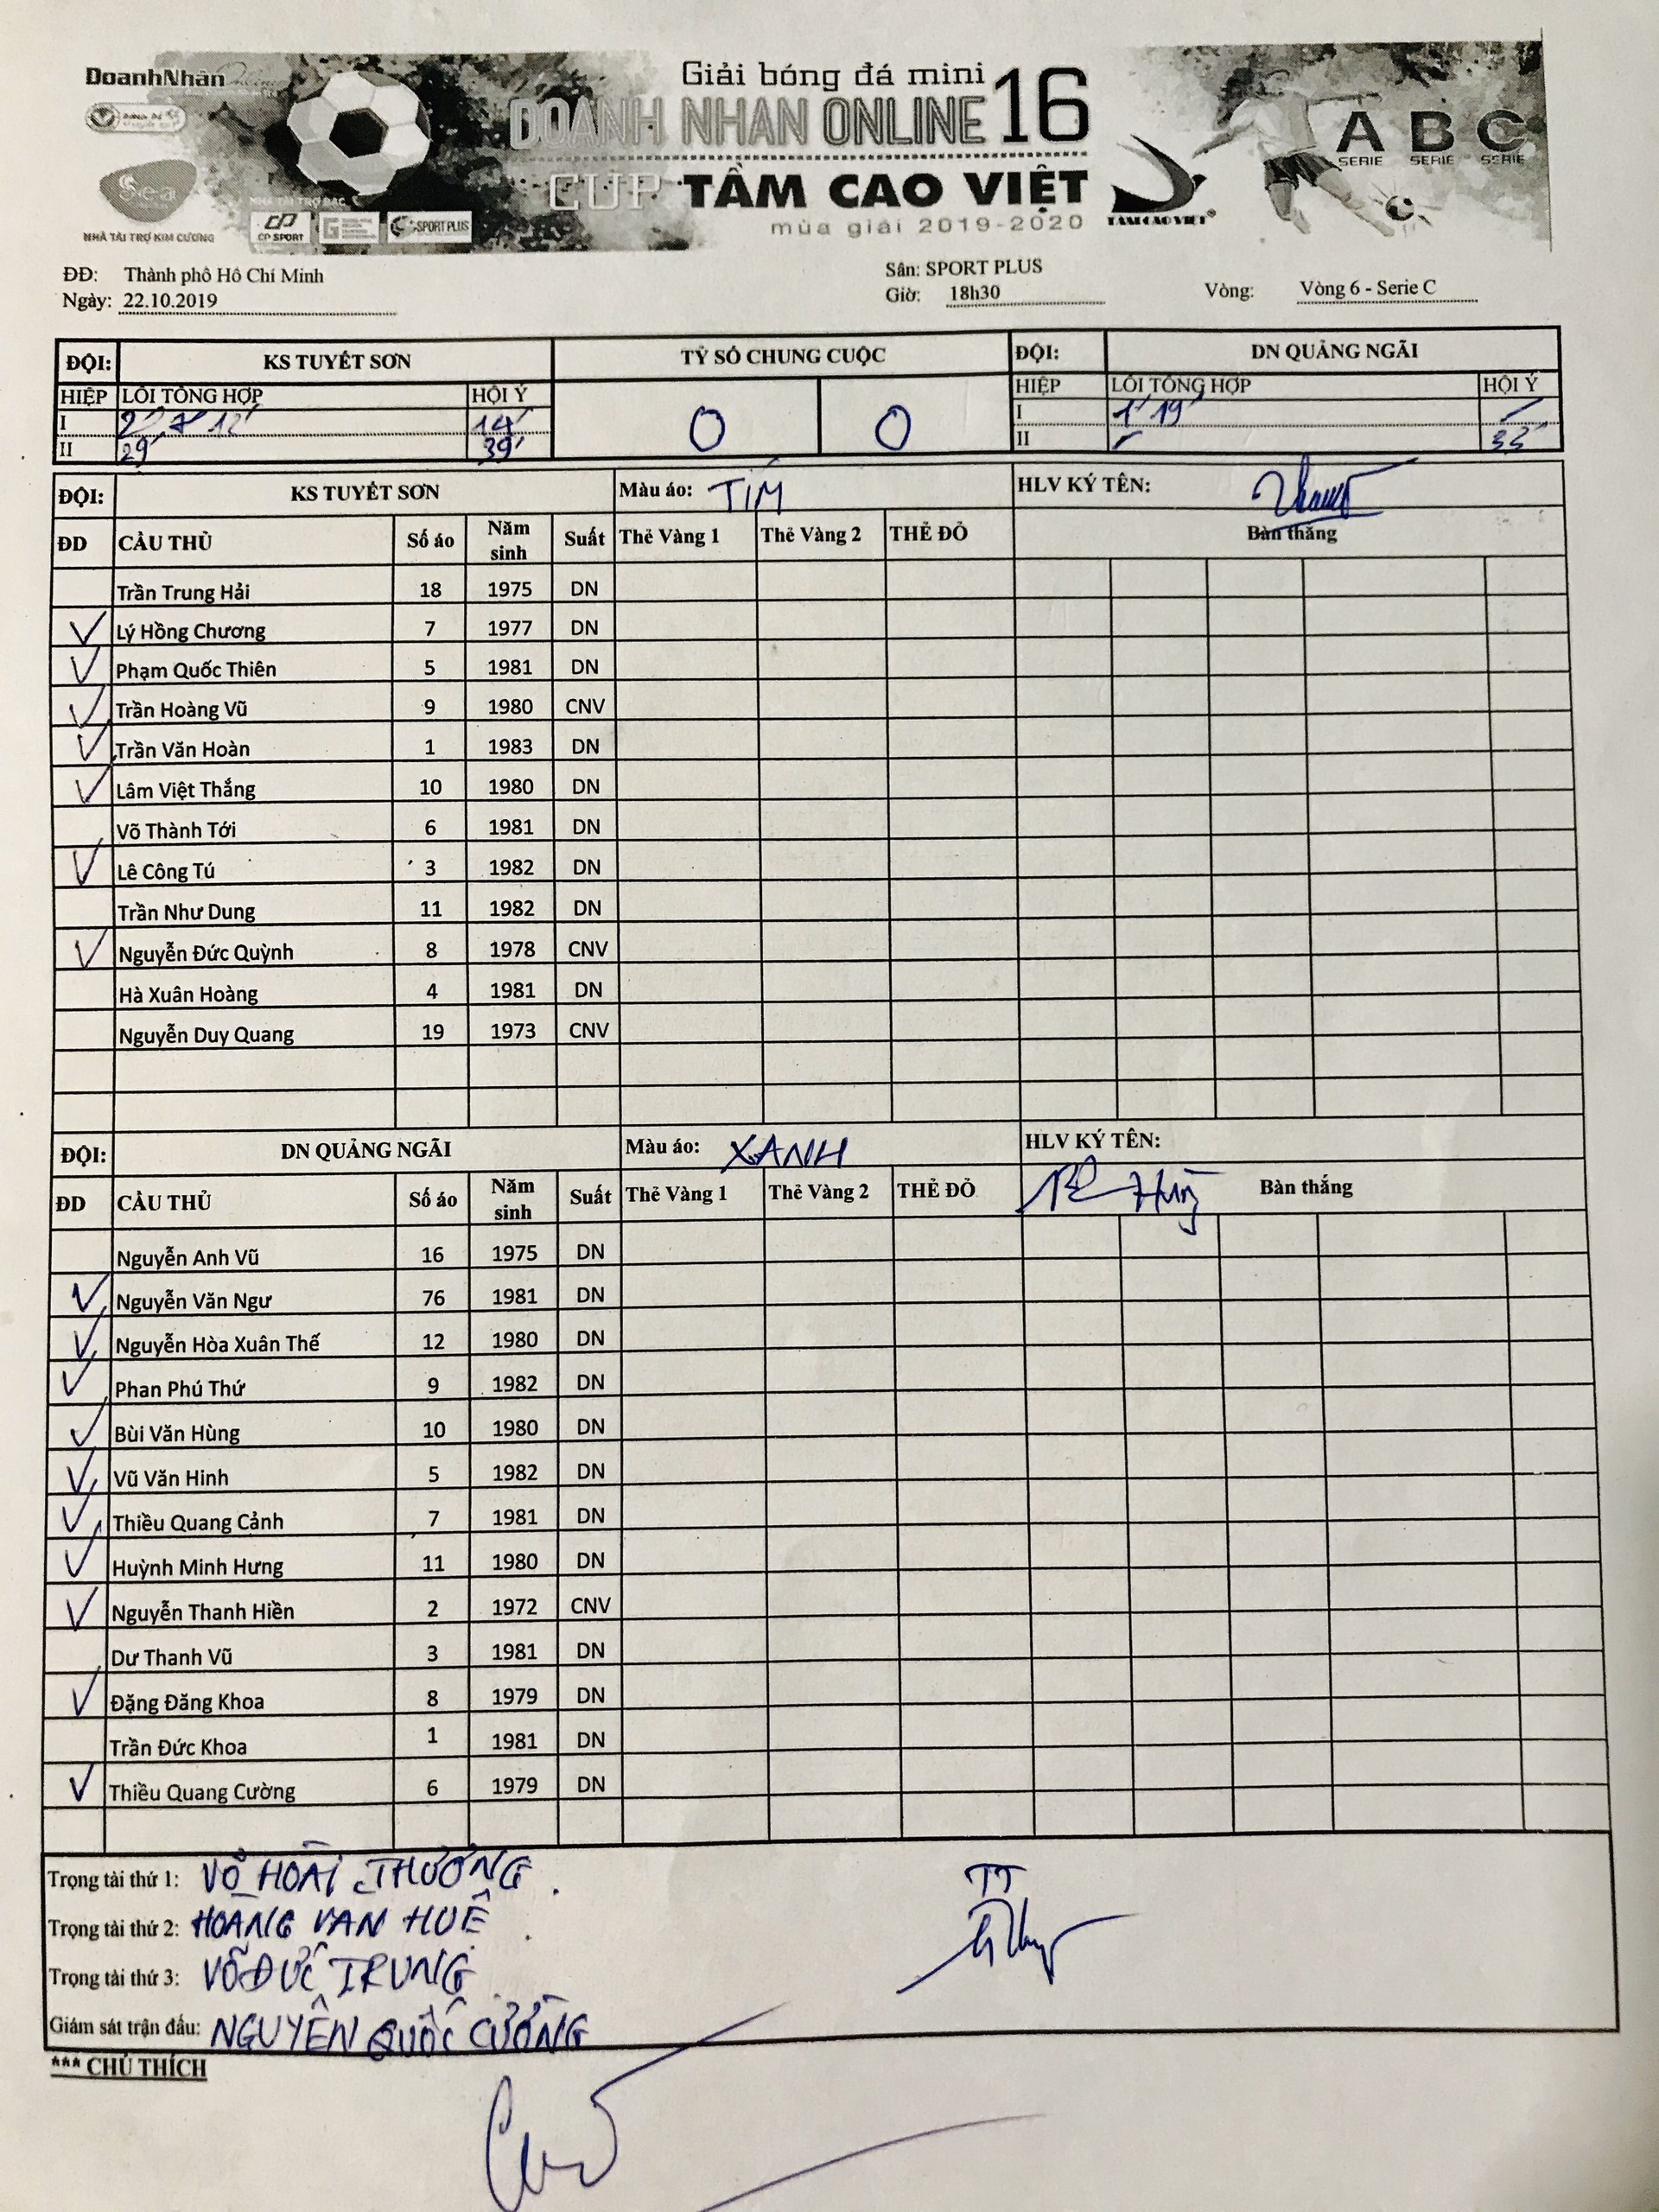 DoanhNhân Online
Giải bóng đá mini
DOANH NHAN ONLINE 16
CUP TẦM CAO VIỆT
mùa giải 2019-2020
NHÀ TÀI TRỢ KIM CƯƠNG
NHÀ TÀI TRỢ BẠC
CP SPORT
SPORT PLUS
TAM CAO VIET
A SERIE B SERIE C SERIE
ĐĐ: Thành phố Hồ Chí Minh
Sân: SPORT PLUS
Ngày: 22.10.2019
Giờ: 18h30
Vòng: Vòng 6 - Serie C
ĐỘI: KS TUYẾT SƠN TỶ SỐ CHUNG CUỘC ĐỘI: DN QUẢNG NGÃI
HIỆP LỖI TỔNG HỢP HỘI Ý 0 0 HIỆP LỖI TỔNG HỢP HỘI Ý
I 2' 7' 12' 14' I 1' 19'
II 29' 39' II 33'
ĐỘI: KS TUYẾT SƠN Màu áo: TÍM HLV KÝ TÊN:
ĐD CẦU THỦ Số áo Năm sinh Suất Thẻ Vàng 1 Thẻ Vàng 2 THẺ ĐỎ Bàn thắng
Trần Trung Hải 18 1975 DN
Lý Hồng Chương 7 1977 DN
Phạm Quốc Thiên 5 1981 DN
Trần Hoàng Vũ 9 1980 CNV
Trần Văn Hoàn 1 1983 DN
Lâm Việt Thắng 10 1980 DN
Võ Thành Tới 6 1981 DN
Lê Công Tú 3 1982 DN
Trần Như Dung 11 1982 DN
Nguyễn Đức Quỳnh 8 1978 CNV
Hà Xuân Hoàng 4 1981 DN
Nguyễn Duy Quang 19 1973 CNV
ĐỘI: DN QUẢNG NGÃI Màu áo: XANH HLV KÝ TÊN:
ĐD CẦU THỦ Số áo Năm sinh Suất Thẻ Vàng 1 Thẻ Vàng 2 THẺ ĐỎ Bàn thắng
Nguyễn Anh Vũ 16 1975 DN
Nguyễn Văn Ngư 76 1981 DN
Nguyễn Hòa Xuân Thế 12 1980 DN
Phan Phú Thứ 9 1982 DN
Bùi Văn Hùng 10 1980 DN
Vũ Văn Hinh 5 1982 DN
Thiều Quang Cảnh 7 1981 DN
Huỳnh Minh Hưng 11 1980 DN
Nguyễn Thanh Hiền 2 1972 CNV
Dư Thanh Vũ 3 1981 DN
Đặng Đăng Khoa 8 1979 DN
Trần Đức Khoa 1 1981 DN
Thiều Quang Cường 6 1979 DN
Trọng tài thứ 1: VÕ HOÀI THƯƠNG TT
Trọng tài thứ 2: HOÀNG VAN HUÊ
Trọng tài thứ 3: VÕ ĐỨC TRUNG
Giám sát trận đấu: NGUYỄN QUỐC CƯỜNG
*** CHÚ THÍCH